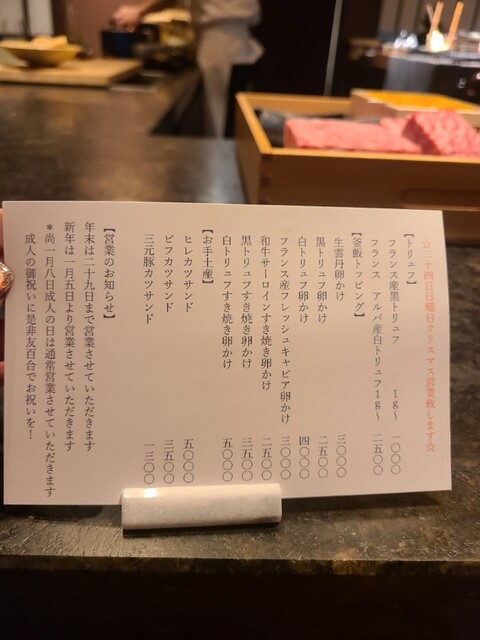 ☆二十四日日曜日クリスマス営業致します☆
【トリュフ】
フランス産黒トリュフ 1g~ 一〇〇〇
フランス アルバ産白トリュフ1g~ 二五〇〇
【釜飯トッピング】
生雲丹卵かけ 三〇〇〇
黒トリュフ卵かけ 二五〇〇
白トリュフ卵かけ 四〇〇〇
フランス産フレッシュキャビア卵かけ 三〇〇〇
和牛サーロインすき焼き卵かけ 二五〇〇
黒トリュフすき焼き卵かけ 三五〇〇
白トリュフすき焼き卵かけ 五〇〇〇
【お手土産】
ヒレカツサンド 五〇〇〇
ビフカツサンド 三五〇〇
三元豚カツサンド 一三〇〇
【営業のお知らせ】
年末は二十九日まで営業させていただきます
新年は一月五日より営業させていただきます
*尚一月八日成人の日は通常営業させていただきます
成人の御祝いに是非友百合でお祝いを!